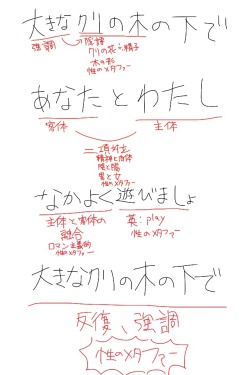 大きなクリの木の下で
強調
陰諱
クリの花→精子
木の形
性のメタファー
あなたとわたし
客体
主体
二項対立
精神と肉体
陰と陽
男と女
性のメタファー
なかよく遊びましょ
主体と客体の
融合
ロマン主義的
性のメタファー
英:play
性のメタファー
大きなクリの木の下で
反復、強調
性のメタファー